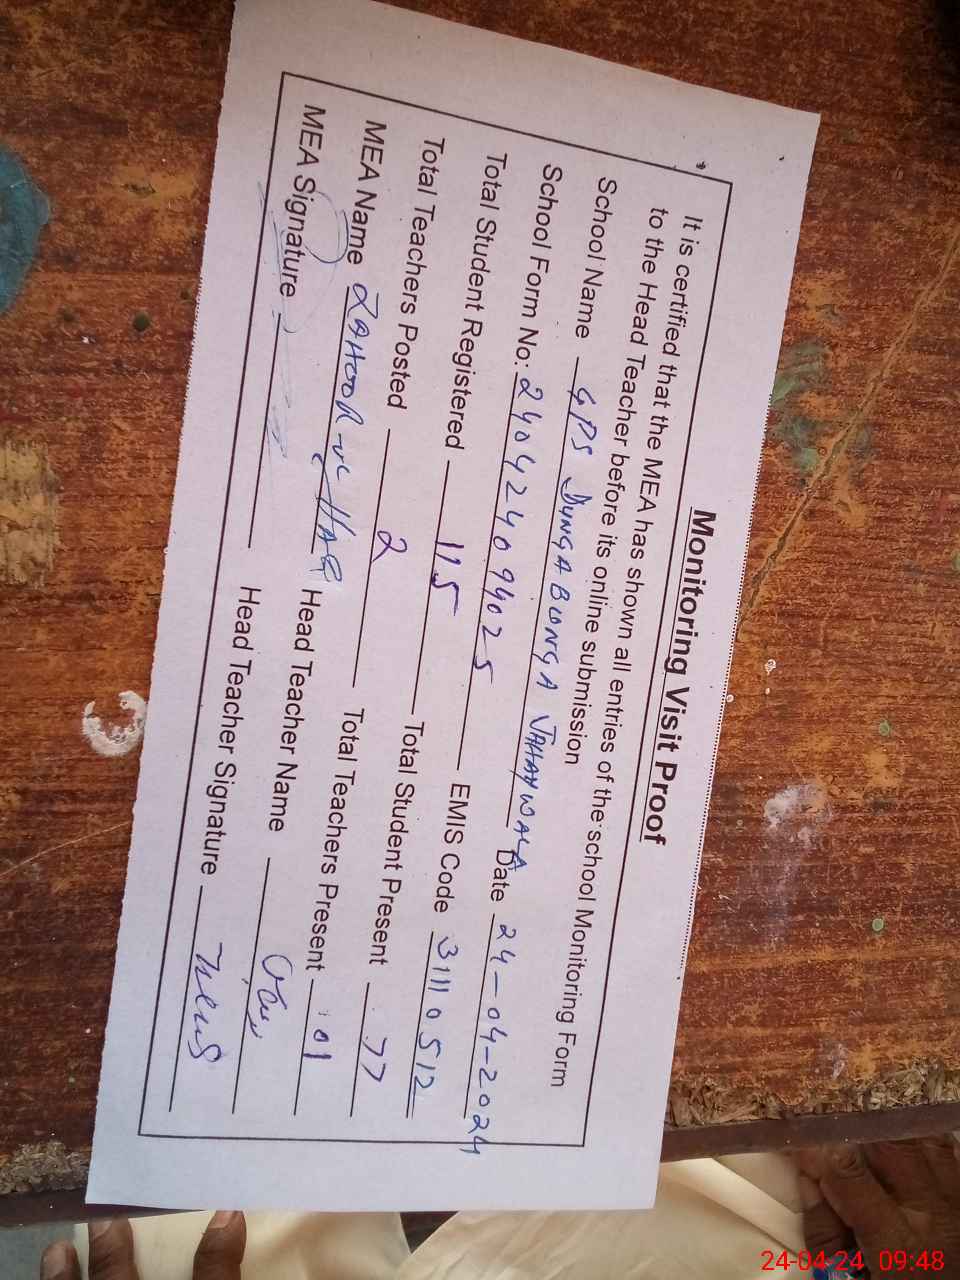 Monitoring Visit Proof
It is certified that the MEA has shown all entries of the school Monitoring Form
to the Head Teacher before its online submission
School Name GPS DUNGA BUNGA JAHANWALA
School Form No: 240424094025 Date 24-04-2024
Total Student Registered 115 EMIS Code 31110512
Total Teachers Posted 2 Total Student Present 77
MEA Name ZAHOOR-UL-HAQ Total Teachers Present 01
MEA Signature Head Teacher Name
Head Teacher Signature
24-04-24 09:48